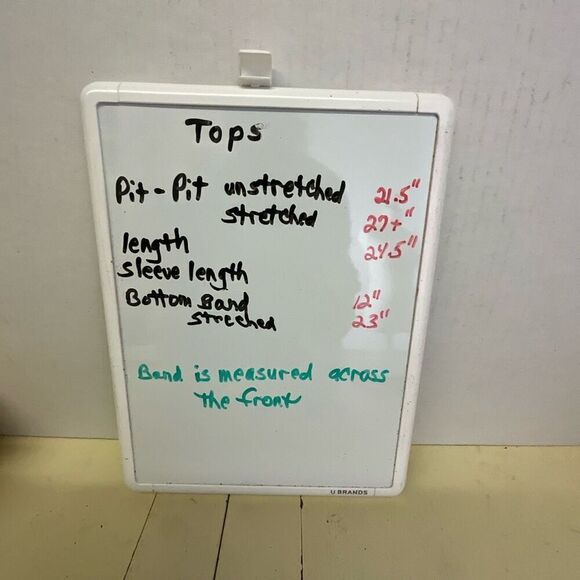 Tops
Pit-Pit unstretched 21.5"
stretched 27+"
length 24.5"
sleeve length
Bottom Band 12"
streched 23"
Band is measured across
the front
U BRANDS